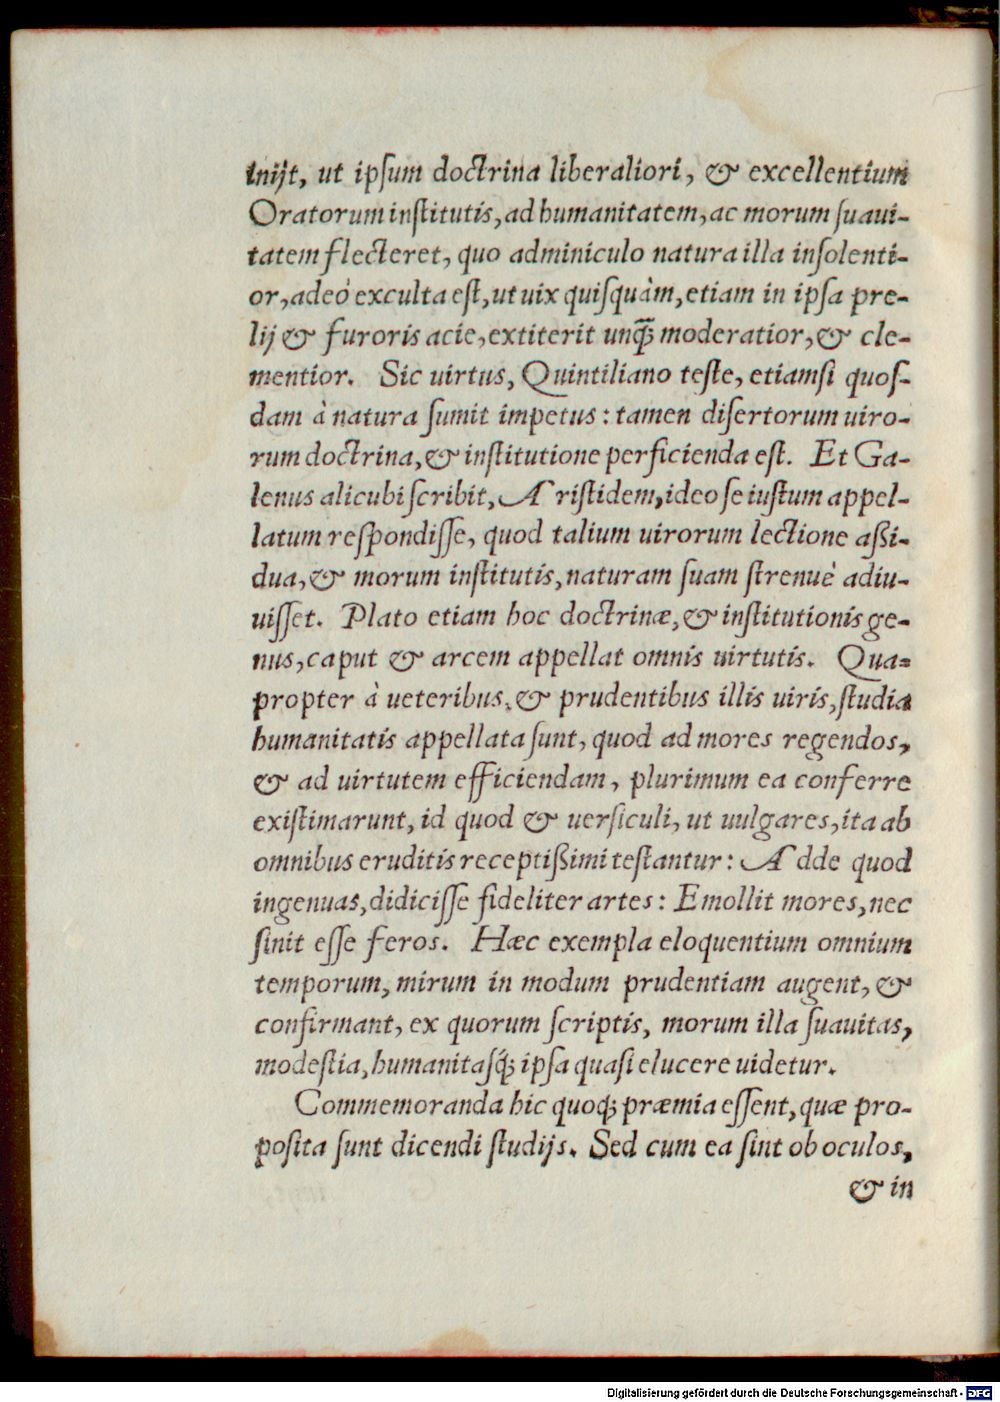 inijt, ut ipſum doctrina liberaliori, & excellentium
Oratorum inſtitutis, ad humanitatem, ac morum ſuaui-
tatem flecteret, quo adminiculo natura illa inſolenti-
or, adeò exculta eſt, ut uix quiſquàm, etiam in ipſa pre-
lij & furoris acie, extiterit unq̄ꝫ moderatior, & cle-
mentior. Sic uirtus, Quintiliano teſte, etiamſi quoſ-
dam à natura ſumit impetus: tamen diſertorum uiro-
rum doctrina, & inſtitutione perficienda eſt. Et Ga-
lenus alicubi ſcribit, Ariſtidem, ideo ſe iuſtum appel-
latum reſpondiſſe, quod talium uirorum lectione aßi-
dua, & morum inſtitutis, naturam ſuam ſtrenuè adiu-
uiſſet. Plato etiam hoc doctrinæ, & inſtitutionis ge-
nus, caput & arcem appellat omnis uirtutis. Qua-
propter à ueteribus, & prudentibus illis uiris, ſtudia
humanitatis appellata ſunt, quod ad mores regendos,
& ad uirtutem efficiendam, plurimum ea conferre
exiſtimarunt, id quod & uerſiculi, ut uulgares, ita ab
omnibus eruditis receptißimi teſtantur: Adde quod
ingenuas, didiciſſe fideliter artes: Emollit mores, nec
ſinit eſſe feros. Hæc exempla eloquentium omnium
temporum, mirum in modum prudentiam augent, &
confirmant, ex quorum ſcriptis, morum illa ſuauitas,
modeſtia, humanitaſq́ꝫ ipſa quaſi elucere uidetur.
Commemoranda hic quoqꝫ præmia eſſent, quæ pro-
poſita ſunt dicendi ſtudijs. Sed cum ea ſint ob oculos,
& in
Digitalisierung gefördert durch die Deutsche Forschungsgemeinschaft - DFG